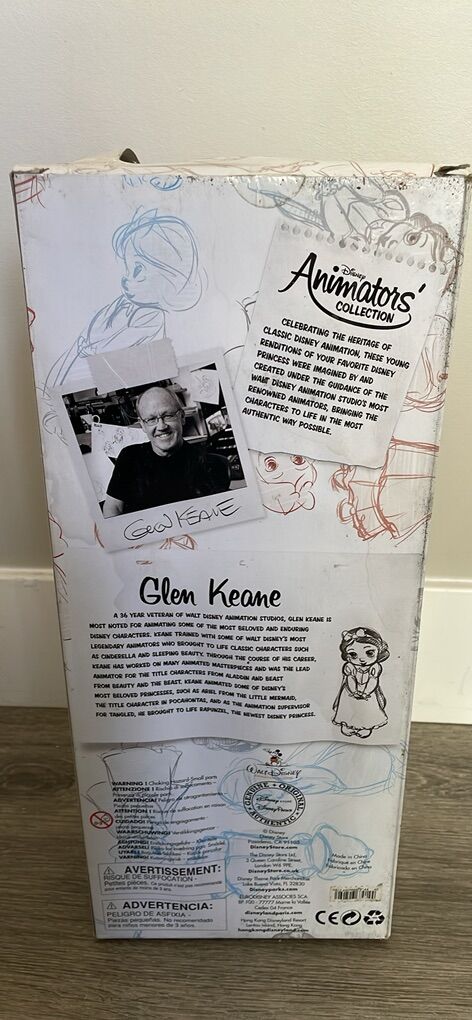 Disney
Animators'
COLLECTION
CELEBRATING THE HERITAGE OF
CLASSIC DISNEY ANIMATION, THESE YOUNG
RENDITIONS OF YOUR FAVORITE DISNEY
PRINCESS WERE IMAGINED BY AND
CREATED UNDER THE GUIDANCE OF THE
WALT DISNEY ANIMATION STUDIO'S MOST
RENOWNED ANIMATORS, BRINGING THE
CHARACTERS TO LIFE IN THE MOST
AUTHENTIC WAY POSSIBLE.
GLEN KEANE
Glen Keane
A 36 YEAR VETERAN OF WALT DISNEY ANIMATION STUDIOS, GLEN KEANE IS
MOST NOTED FOR ANIMATING SOME OF THE MOST BELOVED AND ENDURING
DISNEY CHARACTERS. KEANE TRAINED WITH SOME OF WALT DISNEY'S MOST
LEGENDARY ANIMATORS WHO BROUGHT TO LIFE CLASSIC CHARACTERS SUCH
AS CINDERELLA AND SLEEPING BEAUTY. THROUGH THE COURSE OF HIS CAREER,
KEANE HAS WORKED ON MANY ANIMATED MASTERPIECES AND WAS THE LEAD
ANIMATOR FOR THE TITLE CHARACTERS FROM ALADDIN AND BEAST
FROM BEAUTY AND THE BEAST. KEANE ANIMATED SOME OF DISNEY'S
MOST BELOVED PRINCESSES, SUCH AS ARIEL FROM THE LITTLE MERMAID,
THE TITLE CHARACTER IN POCAHONTAS, AND AS THE ANIMATION SUPERVISOR
FOR TANGLED, HE BROUGHT TO LIFE RAPUNZEL, THE NEWEST DISNEY PRINCESS.
WALT DISNEY
GENUINE • ORIGINAL
Disney STORE
Disney Parks
AUTHENTIC
WARNING! Choking Hazard-Small parts
ATTENZIONE! Rischio di soffocamento -
ADVERTENCIA! Peligro de atragantamiento
Piezas pequeñas
ATTENTION! Risque de suffocation en raison
des petites pièces.
CUIDADO! Perigo de
WAARSCHUWING! Verstikkingsgevaar
ACHTUNG! Erstickungsgefahr - Kleinteile
ADVARSEL!
VARNING!
AVERTISSEMENT:
RISQUE DE SUFFOCATION -
Petites pièces. Ce produit n'est pas recommandé
aux enfants de moins de 3 ans.
ADVERTENCIA:
PELIGRO DE ASFIXIA -
Partes pequeñas. No recomendado
para niños menores de 3 años.
© Disney
Disney Store
Pasadena, CA 91103
DisneyStore.com
The Disney Store Ltd,
3 Queen Caroline Street,
London W6 9PE.
DisneyStore.co.uk
Disney Theme Park Merchandise
Lake Buena Vista, FL 32830
Disneyparks.com
EURODISNEY ASSOCIES SCA
BP 100 - 77777 Marne la Vallée
Cedex 04 France
disneylandparis.com
Hong Kong Disneyland Resort
Lantau Island, Hong Kong
hongkongdisneyland.com
Made in China
Fabriqué en Chine
Fabricado en China
CE